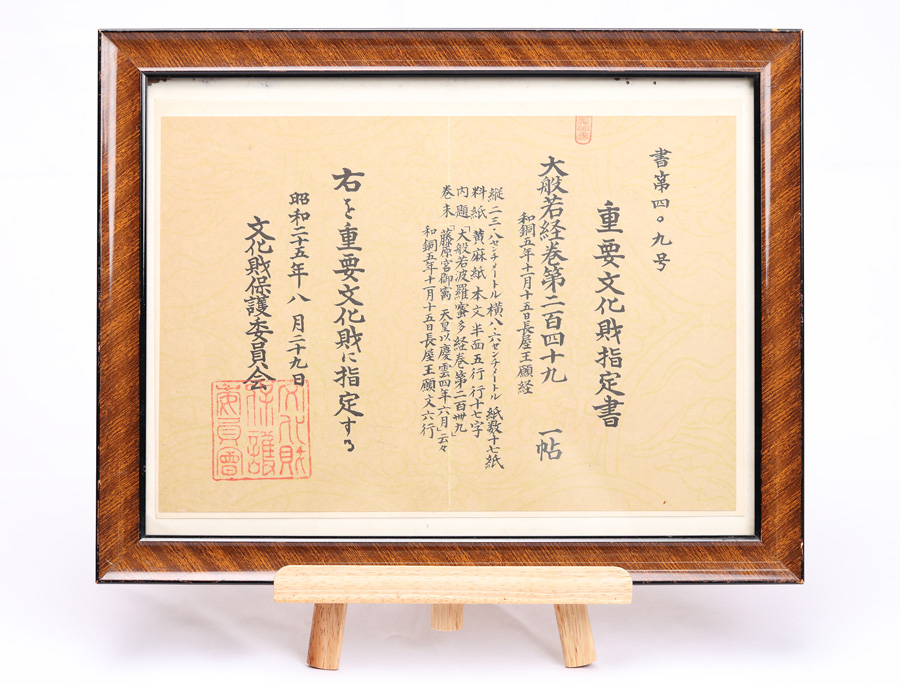 書第四〇九号
重要文化財指定書
大般若経巻第二百四十九 一帖
和銅五年十一月十五日長屋王願経
縦二三・八センチメートル 横八・六センチメートル 紙数十七紙
料紙 黄麻紙 本文 半面五行 行十七字
内題「大般若波羅蜜多経巻第二百卌九」
巻末「藤原宮御寓 天皇以慶雲四年六月」云々
和銅五年十一月十五日長屋王願文六行
右を重要文化財に指定する
昭和二十五年八月二十九日
文化財保護委員会
文化財
保護
委員會